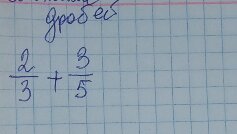 дробей
2/3 + 3/5